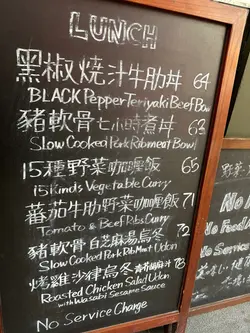 LUNCH
黑椒燒汁牛肋丼 64
BLACK Pepper Teriyaki Beef Bowl
豬軟骨七小時煮丼 63
Slow Cooked Pork Rib meat Bowl
15種野菜咖喱飯 65
15 Kinds Vegetable Curry
蕃茄牛肋野菜咖喱飯 71
Tomato & Beef Ribs Curry
豬軟骨白芝麻湯烏冬 72
Slow Cooked Pork Rib Meat Udon
燒雞沙律烏冬 78
Roasted Chicken Salad Udon
with Wasabi Sesame Sauce
No Service Charge
野菜
No
No Food
No Service